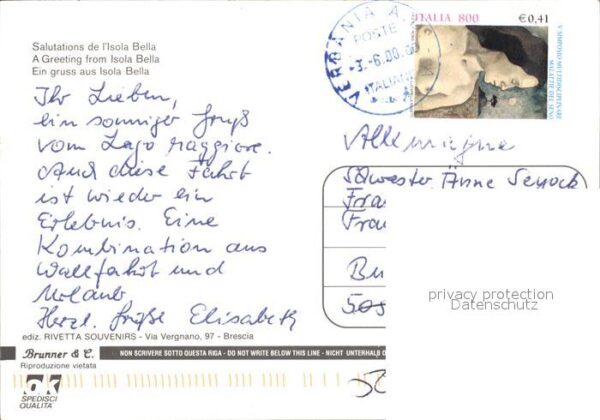 Salutations de l'Isola Bella
A Greeting from Isola Bella
Ein gruss aus Isola Bella
Ihr Lieben,
ein sonniger Gruß
vom Lago Maggiore.
Auch diese Fahrt
ist wieder ein
Erlebnis. Eine
Kombination aus
Wallfahrt und
Urlaub
Herzl. Grüße Elisabeth
ediz. RIVETTA SOUVENIRS - Via Vergnano, 97 - Brescia
Brunner & C.
NON SCRIVERE SOTTO QUESTA RIGA - DO NOT WRITE BELOW THIS LINE - NICHT UNTERHALB D
Riproduzione vietata
ok
SPEDISCI
QUALITA'
VERBANIA
POSTE
ITALIANE
ITALIA 800 €0,41
V SIMPOSIO MULTIDISCIPLINARE
MALATTIE DEL SENO
Allemagne
Schwester Änne
Frau
Bu
privacy protection
Datenschutz